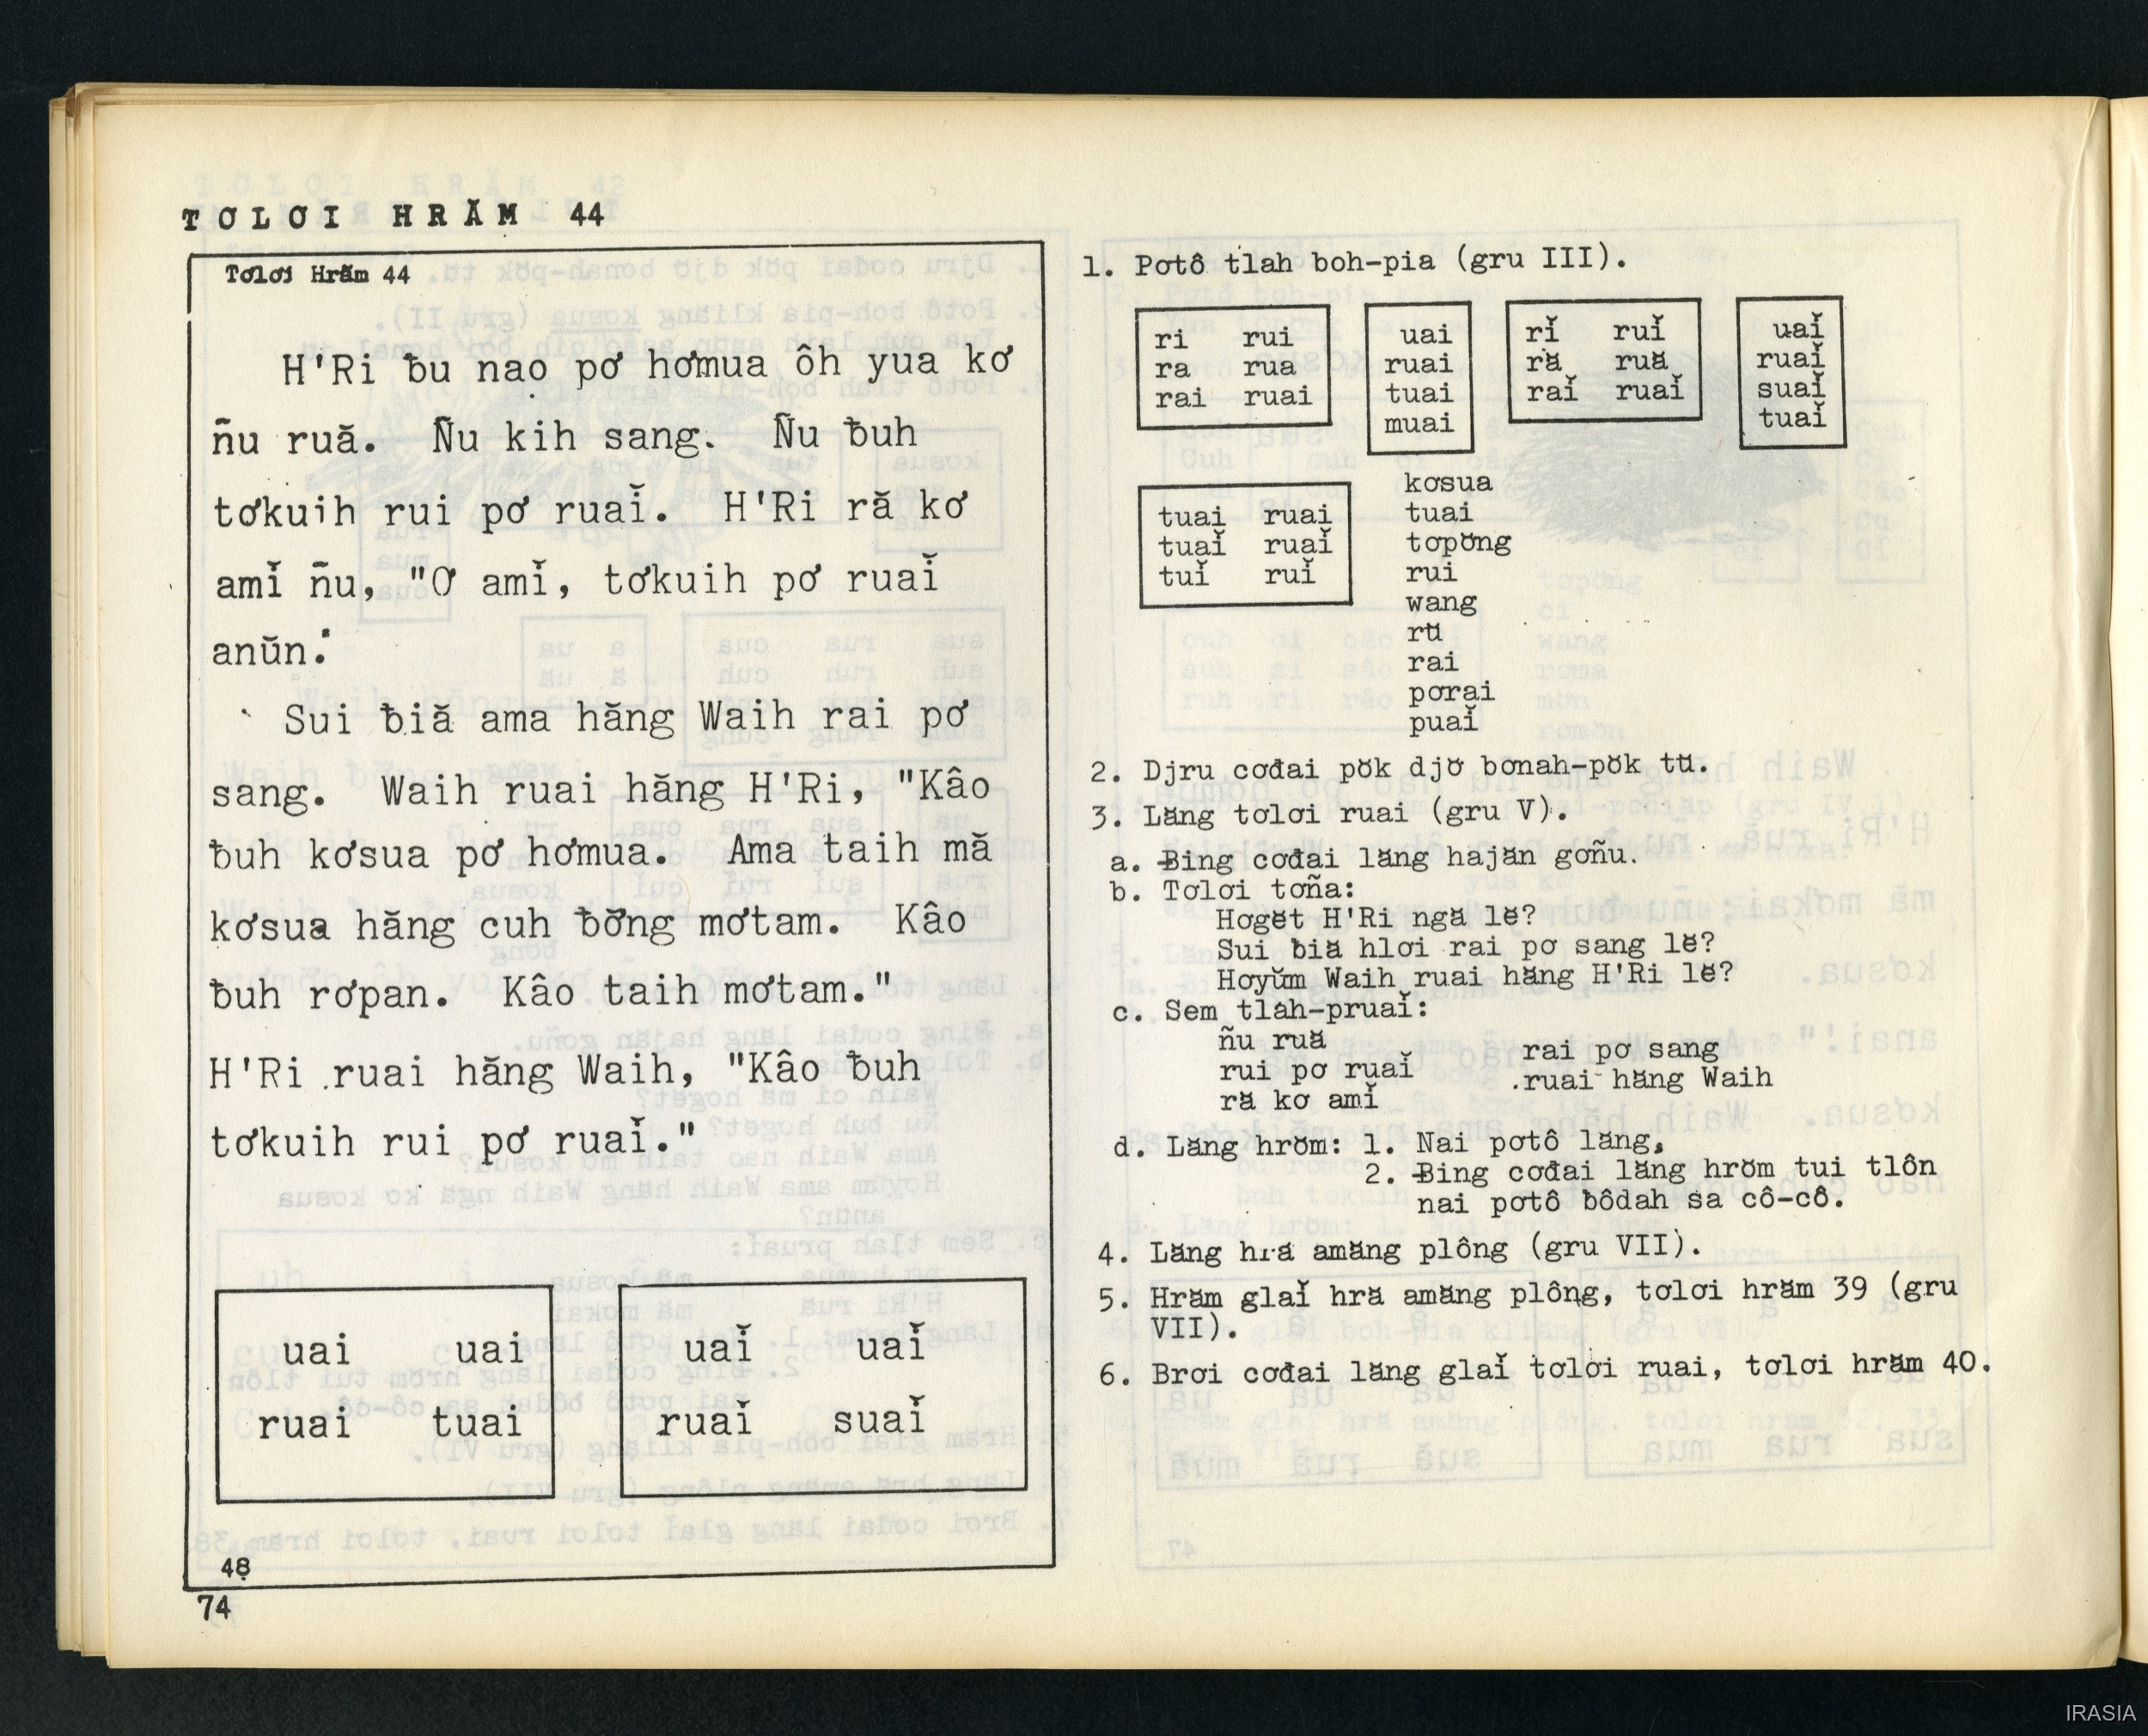 TƠLƠI HRĂM 44
Tơlơi Hrăm 44
H'Ri ƀu nao pơ hơmua ôh yua kơ
ñu ruă. Ñu kih sang. Ñu ƀuh
tơkuih rui pơ ruaĭ. H'Ri ră kơ
amĭ ñu, "Ơ amĭ, tơkuih pơ ruaĭ
anŭn."
Sui ƀiă ama hăng Waih rai pơ
sang. Waih ruai hăng H'Ri, "Kâo
ƀuh kơsua pơ hơmua. Ama taih mă
kơsua hăng cuh ƀơ̆ng mơtam. Kâo
ƀuh rơpan. Kâo taih mơtam."
H'Ri ruai hăng Waih, "Kâo ƀuh
tơkuih rui pơ ruaĭ."
uai uai
ruai tuai
uaĭ uaĭ
ruaĭ suaĭ
48
74
1. Pơtô tlah boh-pia (gru III).
ri rui
ra rua
rai ruai
uai
ruai
tuai
muai
rĭ ruĭ
ră ruă
raĭ ruaĭ
uaĭ
ruaĭ
suaĭ
tuaĭ
tuai ruai
tuaĭ ruaĭ
tuĭ ruĭ
kơsua
tuai
tơpŏng
rui
wang
rŭ
rai
pơrai
puaĭ
2. Djru cơđai pŏk djơ̆ bơnah-pŏk tŭ.
3. Lăng tơlơi ruai (gru V).
a. Ƀing cơđai lăng hajăn gơñu.
b. Tơlơi tơña:
Hơgĕt H'Ri ngă lĕ?
Sui ƀiă hlơi rai pơ sang lĕ?
Hơyŭm Waih ruai hăng H'Ri lĕ?
c. Sem tlah-pruaĭ:
ñu ruă
rui pơ ruaĭ
ră kơ amĭ
rai pơ sang
ruai hăng Waih
d. Lăng hrŏm: 1. Nai pơtô lăng,
2. Ƀing cơđai lăng hrŏm tui tlôn
nai pơtô ƀôdah sa cô-cô.
4. Lăng hră amăng plông (gru VII).
5. Hrăm glaĭ hră amăng plông, tơlơi hrăm 39 (gru
VII).
6. Brơi cơđai lăng glaĭ tơlơi ruai, tơlơi hrăm 40.
IRASIA